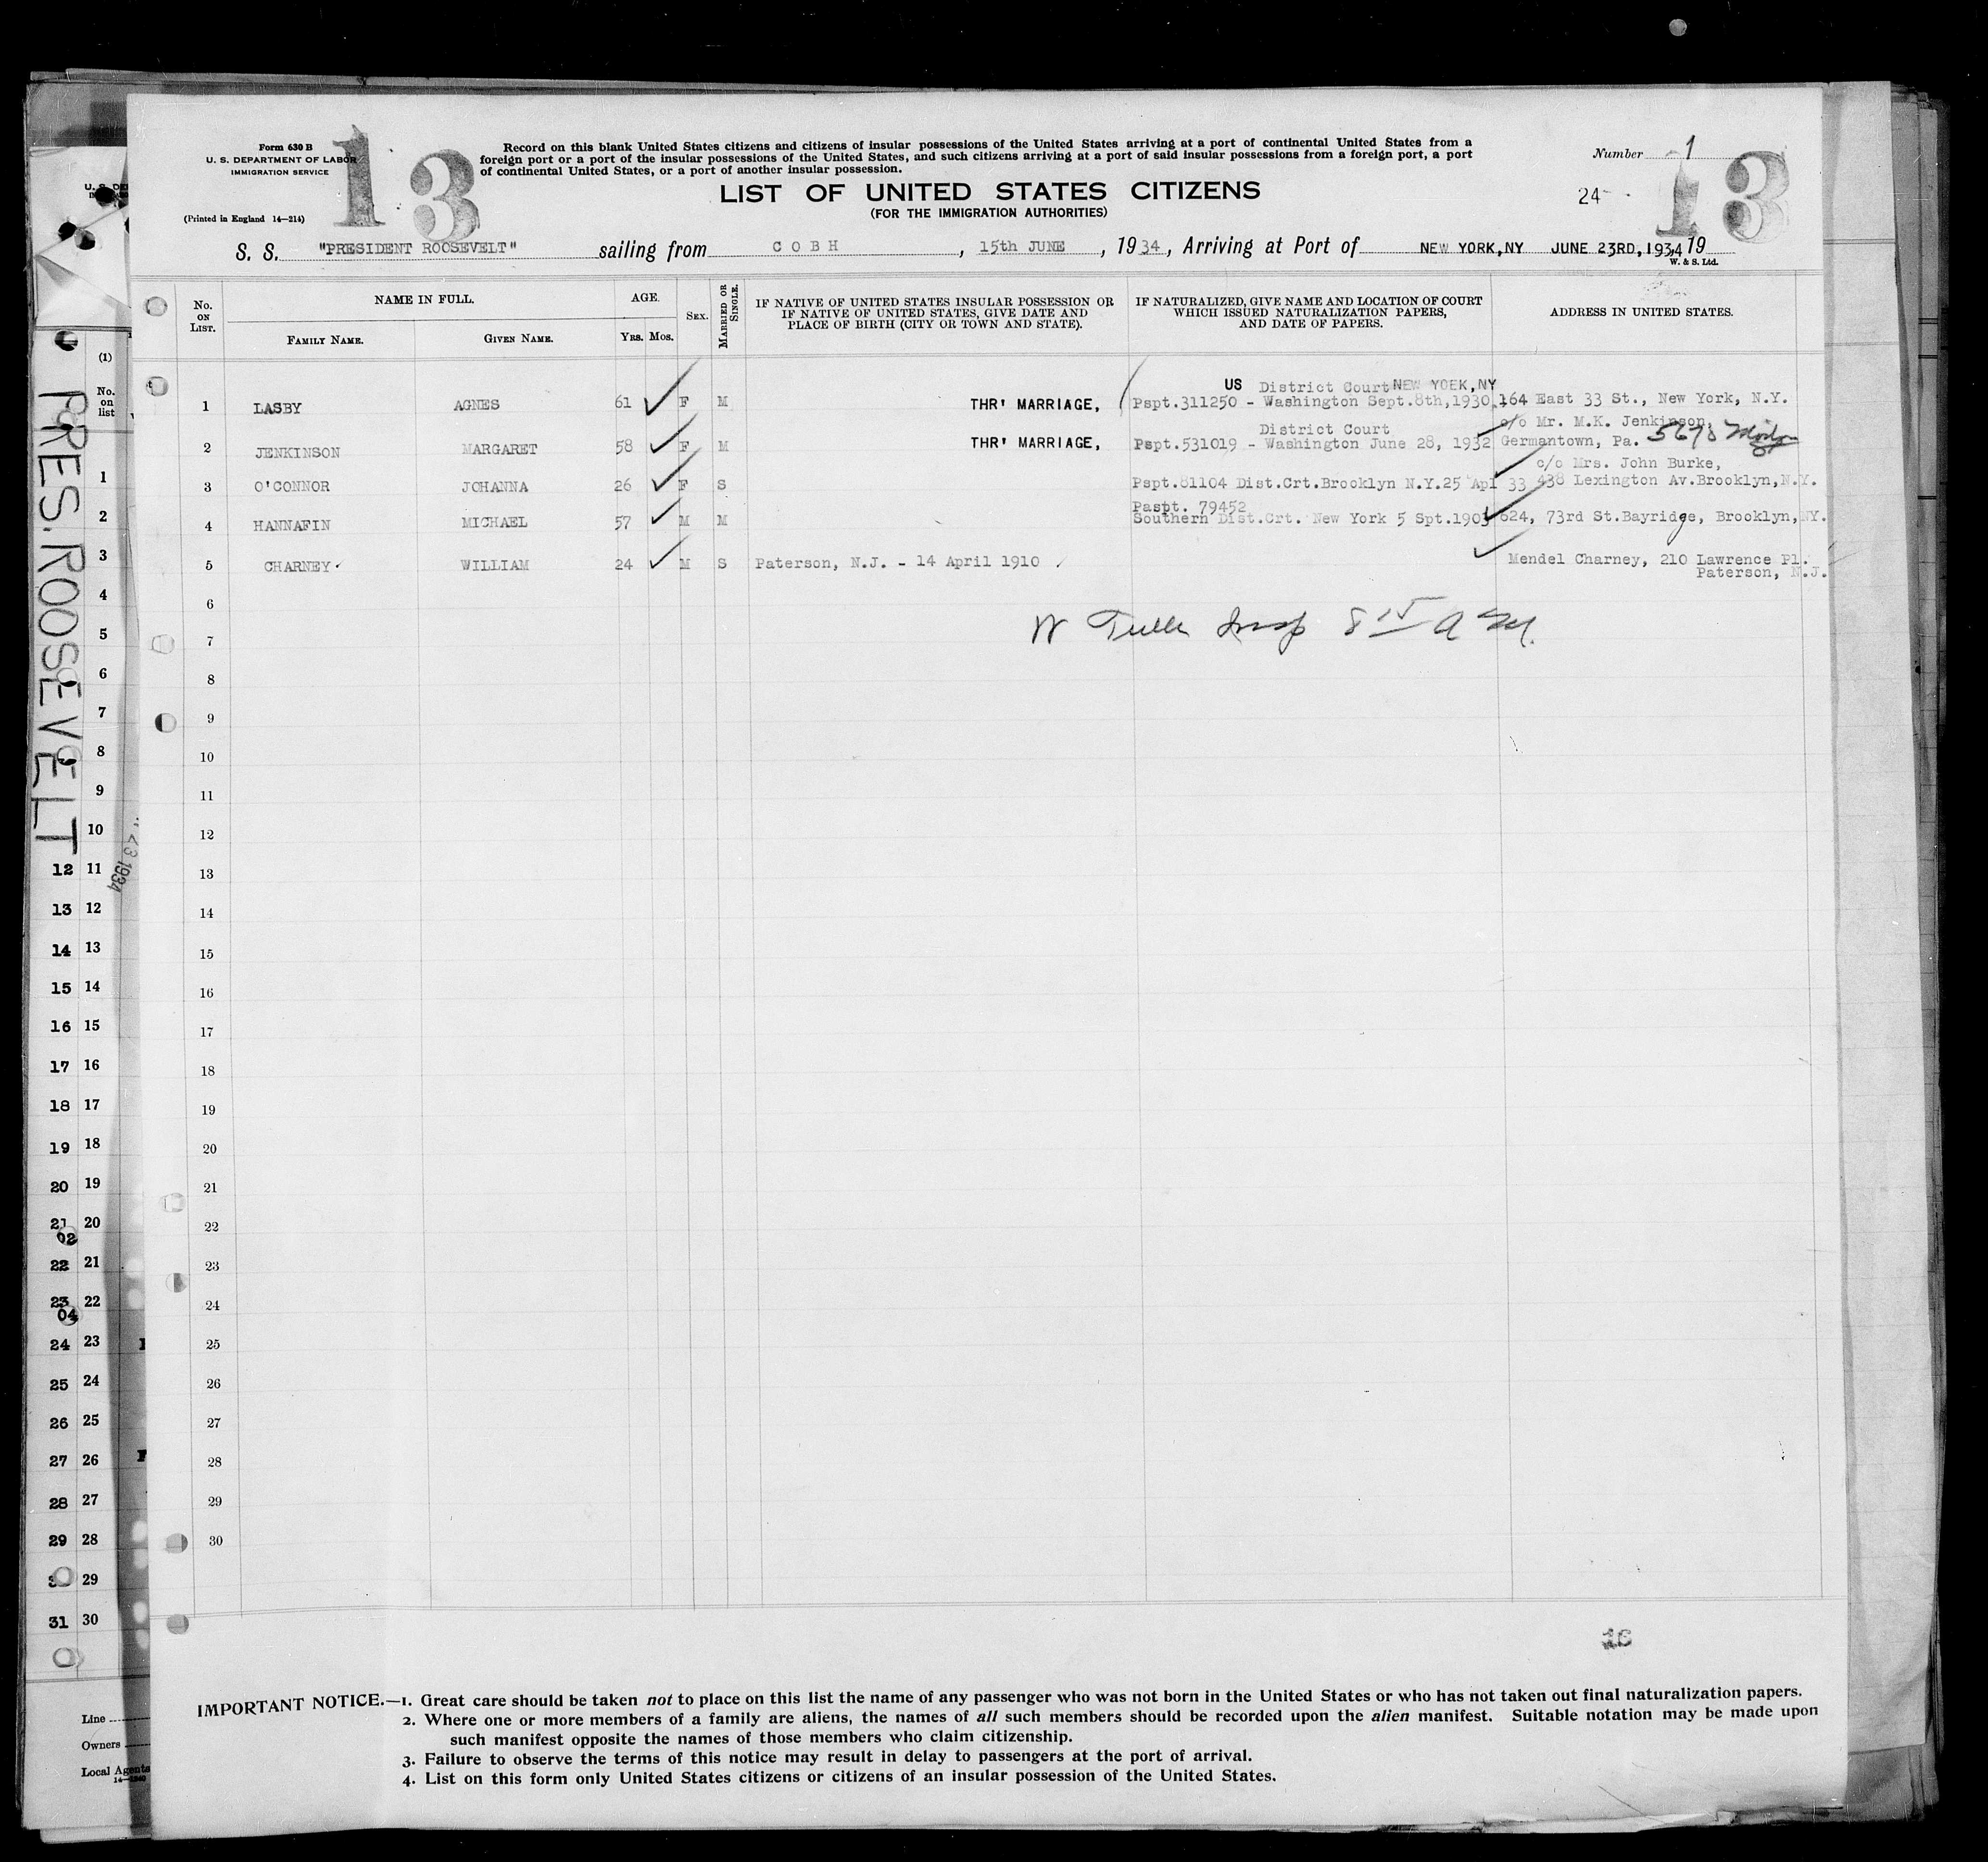 Form 630 B
U. S. DEPARTMENT OF LABOR
IMMIGRATION SERVICE
(Printed in England 14—214)
13
Record on this blank United States citizens and citizens of insular possessions of the United States arriving at a port of continental United States from a
foreign port or a port of the insular possessions of the United States, and such citizens arriving at a port of said insular possessions from a foreign port, a port
of continental United States, or a port of another insular possession.
LIST OF UNITED STATES CITIZENS
(FOR THE IMMIGRATION AUTHORITIES)
Number 1
24
13
S. S. "PRESIDENT ROOSEVELT" sailing from COBH, 15th JUNE, 1934, Arriving at Port of NEW YORK,NY JUNE 23RD,1934 19
W. & S. Ltd.
No. ON LIST.
NAME IN FULL.
FAMILY NAME.
GIVEN NAME.
AGE.
YRS. MOS.
SEX.
MARRIED OR SINGLE.
IF NATIVE OF UNITED STATES INSULAR POSSESSION OR
IF NATIVE OF UNITED STATES, GIVE DATE AND
PLACE OF BIRTH (CITY OR TOWN AND STATE).
IF NATURALIZED, GIVE NAME AND LOCATION OF COURT
WHICH ISSUED NATURALIZATION PAPERS,
AND DATE OF PAPERS.
ADDRESS IN UNITED STATES.
US District Court NEW YORK,NY
1 LASBY AGNES 61 F M THR' MARRIAGE, Pspt.311250 - Washington Sept.8th,1930 164 East 33 St., New York, N.Y.
District Court c/o Mr. M.K. Jenkinson,
2 JENKINSON MARGARET 58 F M THR' MARRIAGE, Pspt.531019 - Washington June 28, 1932 Germantown, Pa. 5678
c/o Mrs. John Burke,
3 O'CONNOR JOHANNA 26 F S Pspt.81104 Dist.Crt.Brooklyn N.Y.25 Apl 33 438 Lexington Av.Brooklyn,N.Y.
Paspt. 79452
4 HANNAFIN MICHAEL 57 M M Southern Dist.Crt. New York 5 Spt.1903 624, 73rd St.Bayridge, Brooklyn,NY.
5 CHARNEY WILLIAM 24 M S Paterson, N.J. - 14 April 1910 Mendel Charney, 210 Lawrence Pl.
Paterson, N.J.
6
W Insp 8 15 A M.
7
8
9
10
11
12
13
14
15
16
17
18
19
20
21
22
23
24
25
26
27
28
29
30
16
IMPORTANT NOTICE.—1. Great care should be taken not to place on this list the name of any passenger who was not born in the United States or who has not taken out final naturalization papers.
2. Where one or more members of a family are aliens, the names of all such members should be recorded upon the alien manifest. Suitable notation may be made upon
such manifest opposite the names of those members who claim citizenship.
3. Failure to observe the terms of this notice may result in delay to passengers at the port of arrival.
4. List on this form only United States citizens or citizens of an insular possession of the United States.
PRES. ROOSEVELT
(1)
No. on list
1
2
3
4
5
6
7
8
9
10
12 11
13 12
14 13
15 14
16 15
17 16
18 17
19 18
20 19
21 20
02
22 21
23 22
04
24 23
25 24
26 25
27 26
28 27
29 28
29
31 30
23 1934
Line
Owners
Local Agents